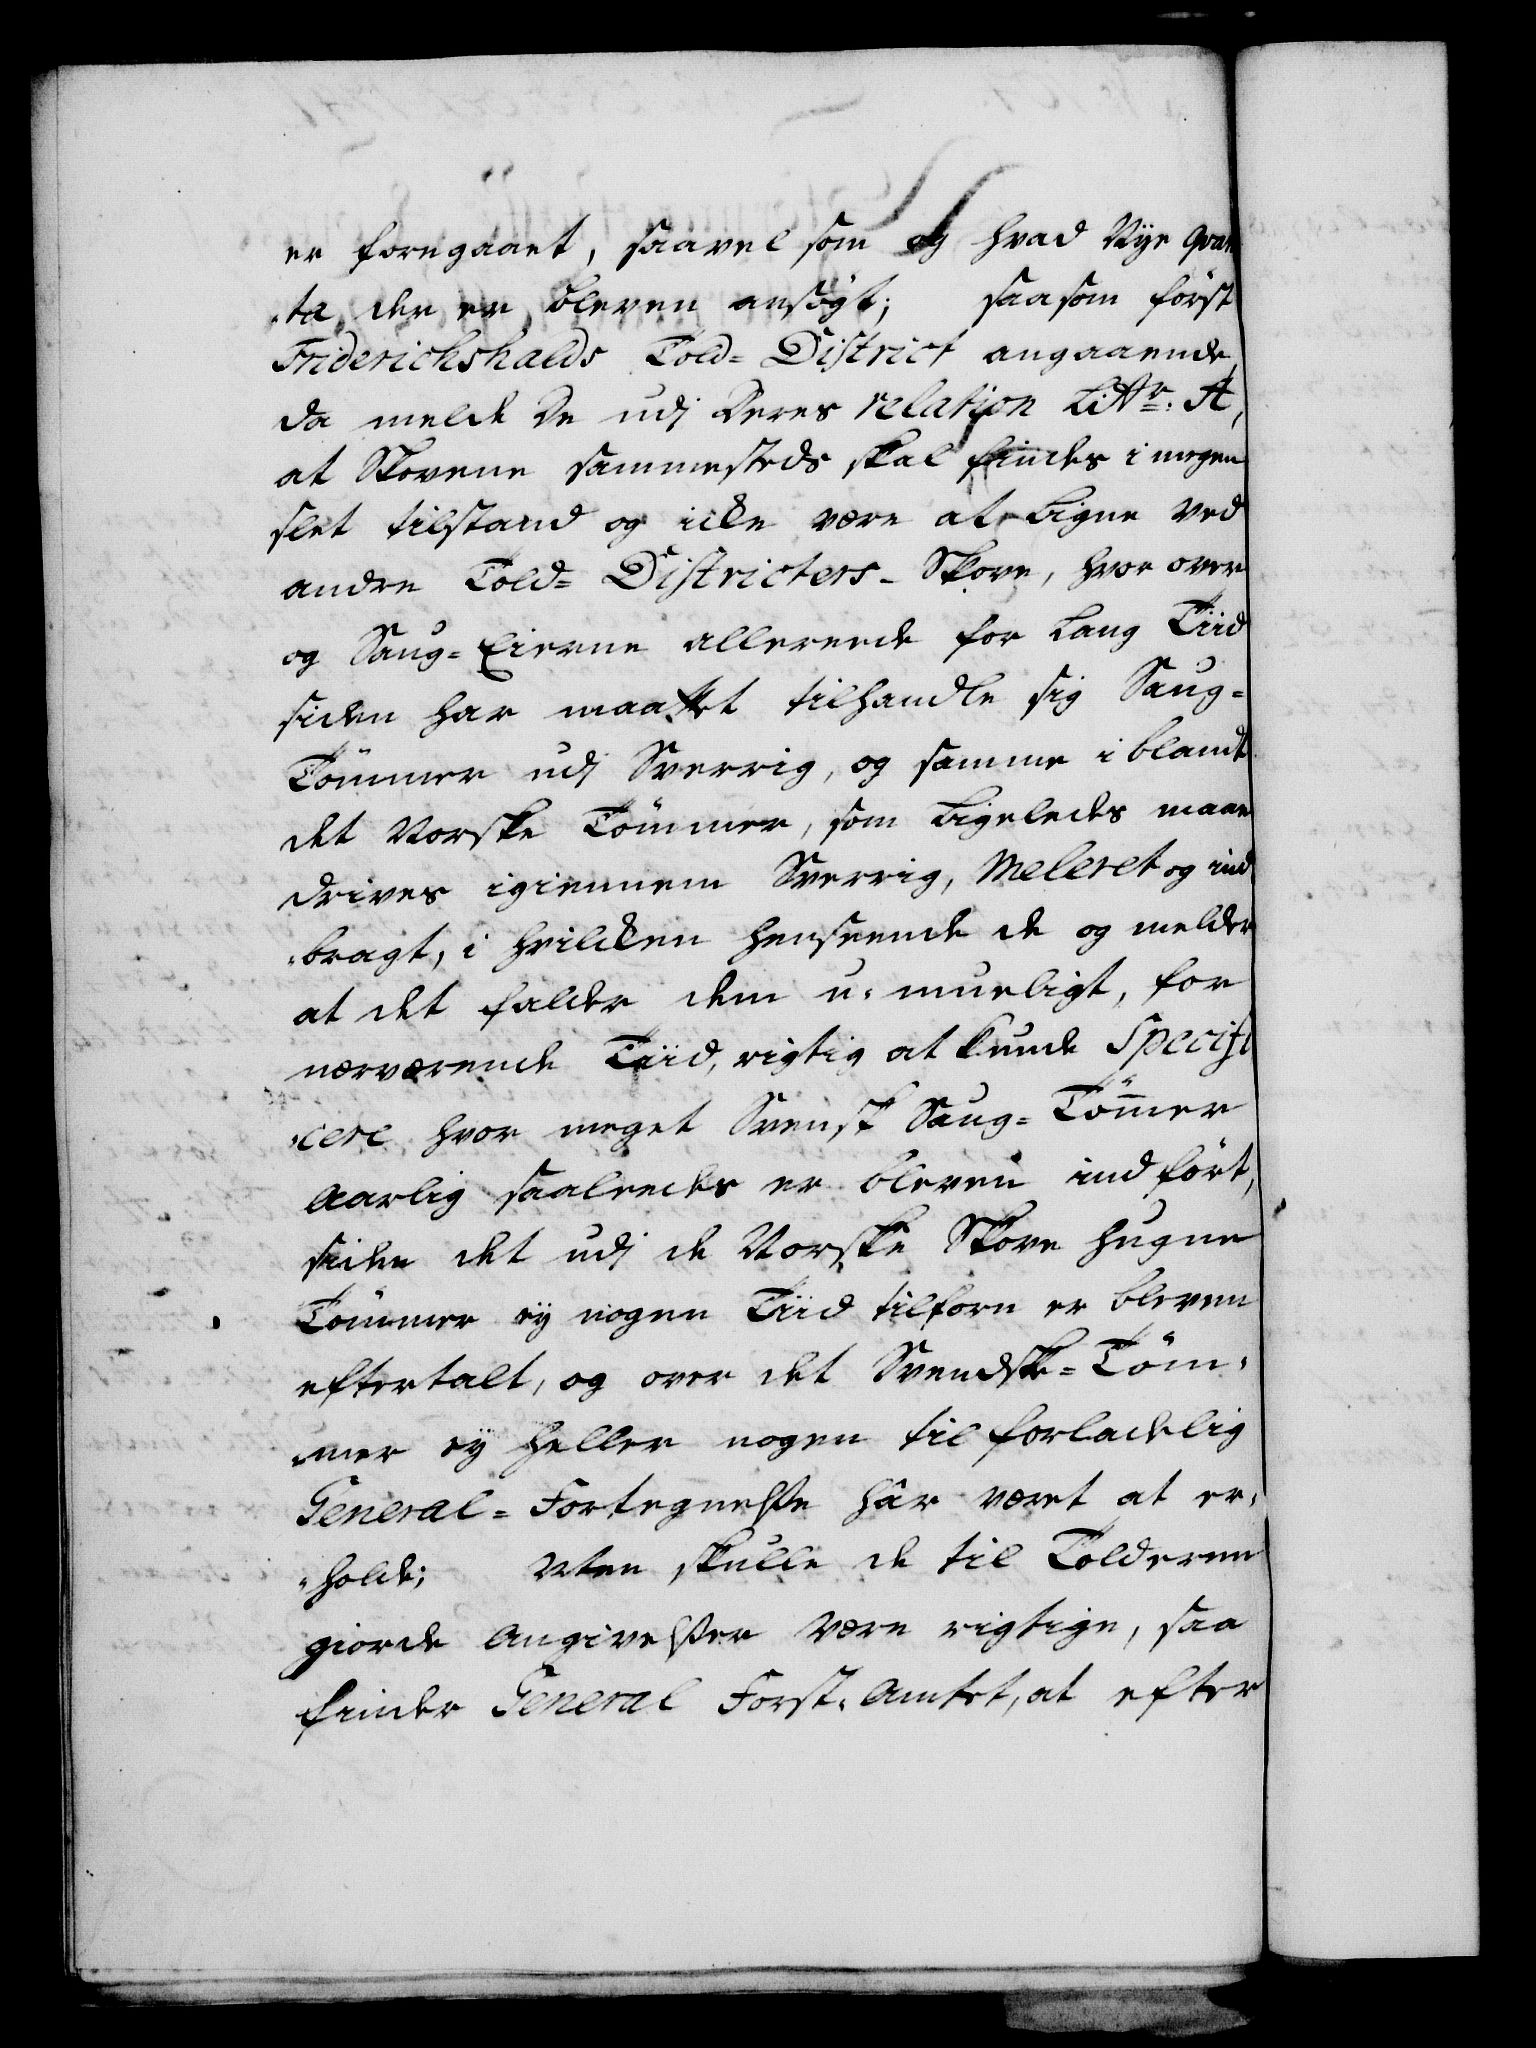 er foregaaet, saavel som og hvad Nye Qvan
"ta der er bleven ansøgt; saasom først
Friderichshalds Told=District angaaende,
da melde De udj Deres relation Littr: A,
at Skovene sammesteds skal findes i megen
slet tilstand og icke være at Ligne ved
andre Told=Districters-Skove, hvor over
og Saug=Eierne allereede for Lang Tiid
siden har maattet tilhandle sig Saug=
Tømmer udj Sverrig, og samme iblandt
det Norske Tømmer, som Ligeledes maae
drives igiennem Sverrig, Meleret og ind
"bragt, i hvilcken henseende de og melder
at det falder dem u-mueligt, for
nærværende Tiid, rigtig at kunde Specifi
"cere hvor meget Svensk Saug=Tømmer
Aarlig saaledes er bleven indført,
siden det udj de Norske Skove hugne
Tømmer ej nogen Tiid tilforn er bleven
eftertalt, og over det Svendske=Tøm"
"mer ej heller nogen tilforladelig
General=Fortegnelse har været at er"
"holde; Men skulle de til Tolderne
giorde Angivelser være rigtige, saa
finder General Forst-Amtet, at efter